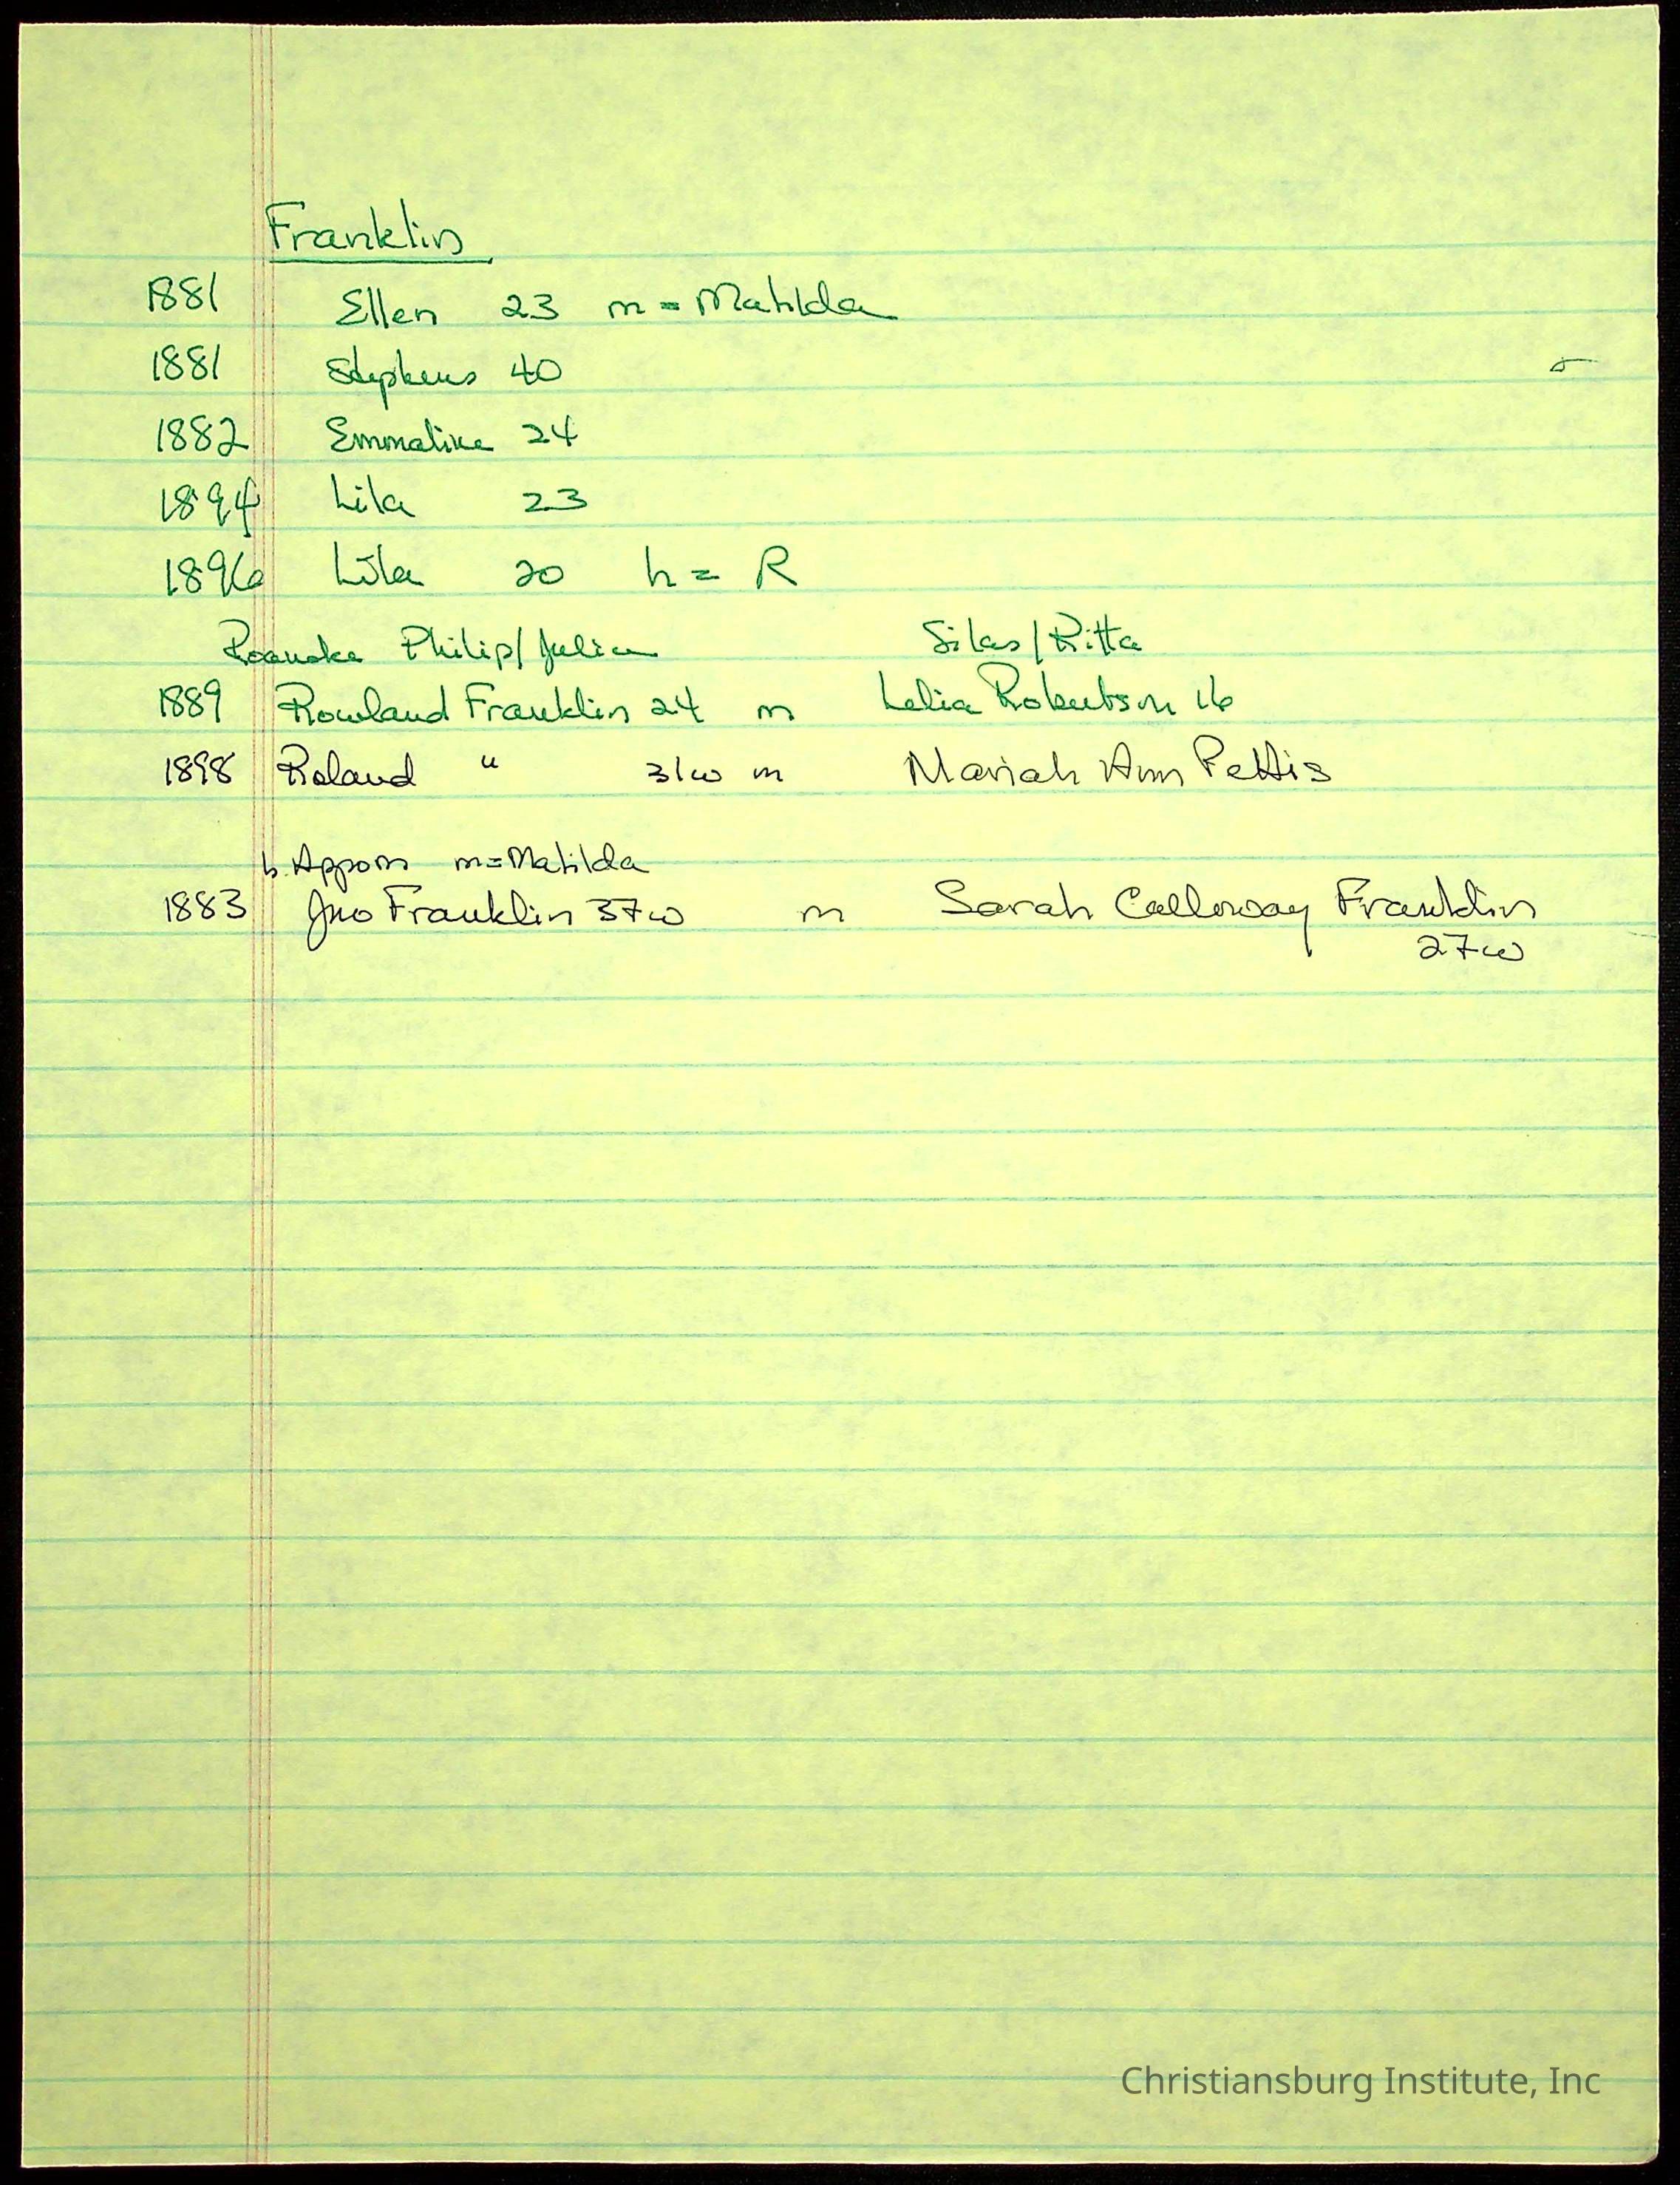 Franklin
1881 Ellen 23 m = Matilda
1881 Stephens 40
1882 Emmaline 24
1894 Lila 23
1896 Lila 20 h = R
Roanoke Philip/Julia Silas/Ritta
1889 Rowland Franklin 24 m Lelia Robertson 16
1898 Roland " 31w m Mariah Ann Pettis
b. Appom m=Matilda
1883 Jno Franklin 37w m Sarah Calloway Franklin
27w
Christiansburg Institute, Inc